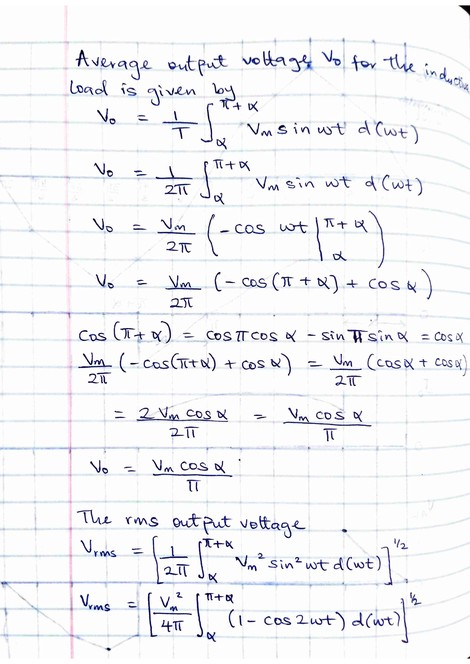 Average output voltage, V₀ for the inductive
load is given by
V₀ = 1/T ∫_α^{π+α} Vm sin wt d(wt)
V₀ = 1/2π ∫_α^{π+α} Vm sin wt d(wt)
V₀ = Vm/2π (-cos wt |_α^{π+α})
V₀ = Vm/2π (-cos(π+α) + cos α)
cos(π+α) = cos π cos α - sin π sin α = cos α
Vm/2π (-cos(π+α) + cos α) = Vm/2π (cos α + cos α)
= 2 Vm cos α/2π = Vm cos α/π
V₀ = Vm cos α/π
The rms output voltage
Vrms = [1/2π ∫_α^{π+α} Vm² sin² wt d(wt)]^{1/2}
Vrms = [Vm²/4π ∫_α^{π+α} (1 - cos 2wt) d(wt)]^{1/2}